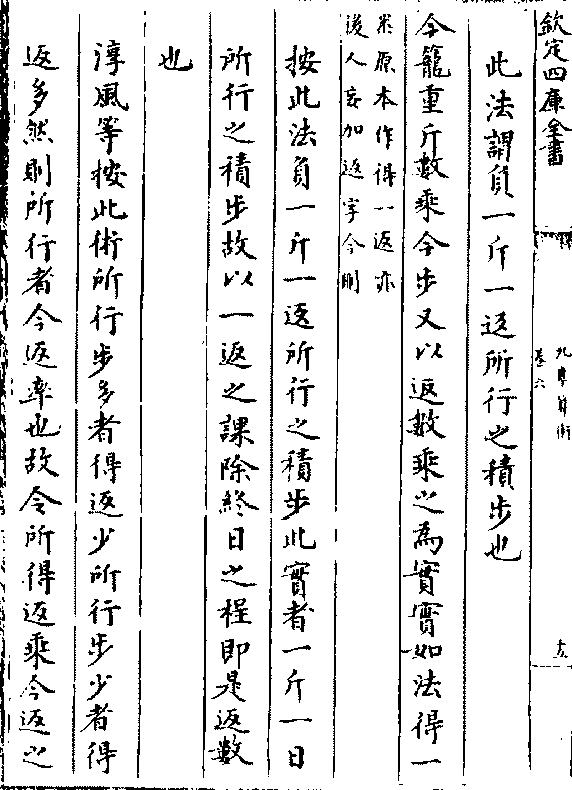 欽定四庫全書
九章算術
卷六
十五
此法謂負一斤一返所行之積步也
今籠重斤數乘今步又以返數乘之為實實如法得一
案原本作得一返亦
後人妄加返字今刪
按此法負一斤一返所行之積步此實者一斤一日
所行之積步故以一返之課除終日之程即是返數
也
淳風等按此術所行步多者得返少所行步少者得
返多然則所行者今返率也故令所得返乘今返之